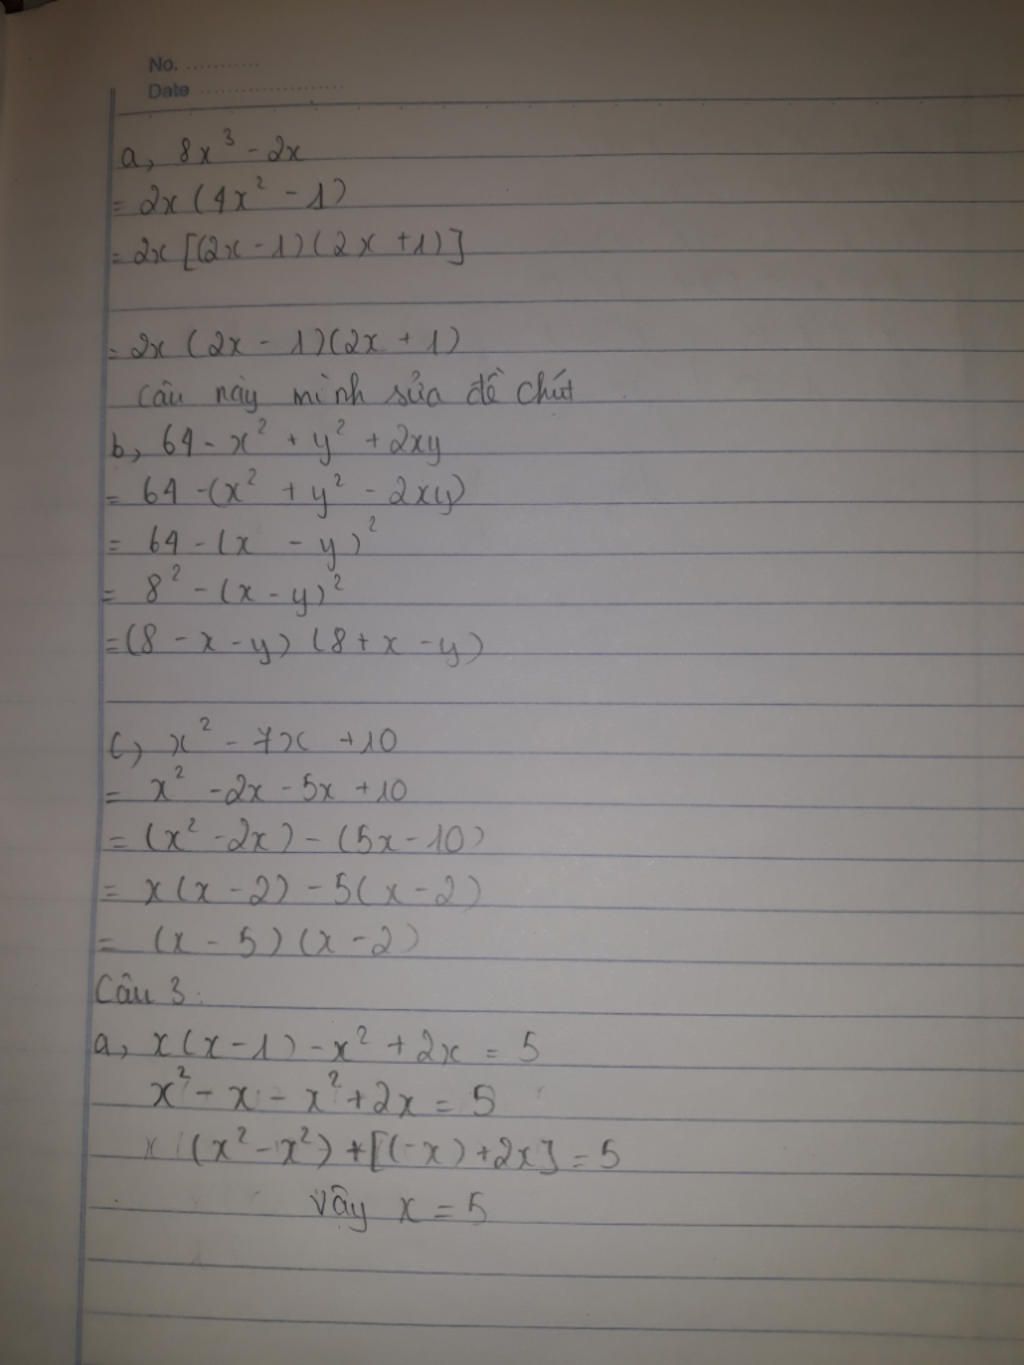 No. ...........
Date ......................
a, 8x³ - 2x
= 2x (4x² - 1)
= 2x [(2x - 1)(2x + 1)]
= 2x (2x - 1)(2x + 1)
Câu này mình sửa đề chút
b, 64 - x² + y² + 2xy
= 64 - (x² + y² - 2xy)
= 64 - (x - y)²
= 8² - (x - y)²
= (8 - x - y) (8 + x - y)
c, x² - 7x + 10
= x² - 2x - 5x + 10
= (x² - 2x) - (5x - 10)
= x(x - 2) - 5(x - 2)
= (x - 5)(x - 2)
Câu 3:
a, x(x - 1) - x² + 2x = 5
x² - x - x² + 2x = 5
(x² - x²) + [(-x) + 2x] = 5
Vây x = 5